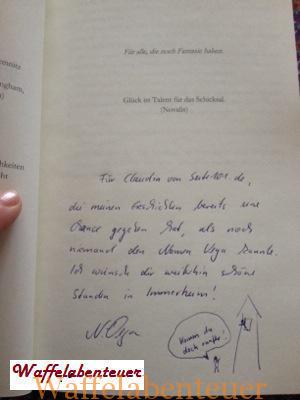 emnitz
ngham,
n)
chkeiten
ht
Für alle, die noch Fantasie haben.
Glück ist Talent für das Schicksal.
(Novalis)
Für Claudia von Seite101.de,
die meinen Geschichten bereits eine
Chance gegeben hat, als noch
niemand den Namen Vega kannte.
Ich wünsche dir weiterhin schöne
Stunden in Immerheim!
N. Vega
Komm du
doch runter!
Waffelabenteuer
Waffelabenteuer